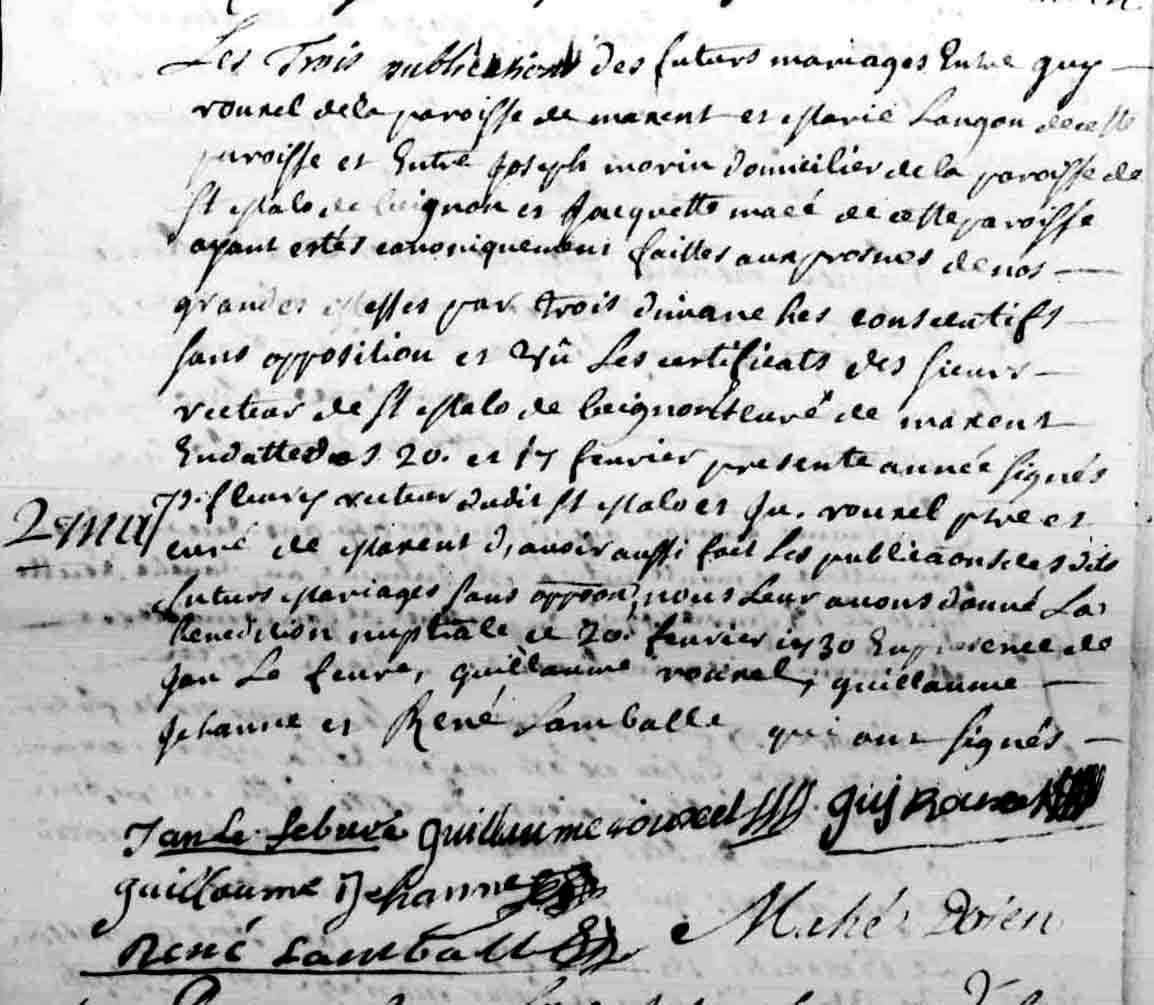 Les Trois publications des futurs mariages Entre guy
rouxel de la paroisse de maxent et Marie Langou de cette
paroisse et Entre Joseph morin domicilier de la paroisse de
St Malo de beignon et Jacquette macé de cette paroisse
ayant estés canoniquement faittes aux prosnes de nos
grandes Messes par trois dimanches consecutifs
sans opposition et vû Les certificats des sieurs
recteur de St Malo de beignon et curé de maxent
En datte des 20. et 17 fevrier presente année signés
P. fleury recteur dudit St Malo et Ju. rouxel ptre et
2 mar
curé de Maxent d'avoir aussi fait Les publicaons desdits
futurs Mariages sans oppoon, nous Leur avons donné La
Benediction nuptiale ce 20. fevrier 1730 En presence de
Jan Le feuvre, guillaume rouxel, guillaume
Jehanne et René Lamballe qui ont signés
Jan Le febuvre guillaume rouxel guy Rouxel
guillaume Jehanne
Mahé Doien
René Lamballe